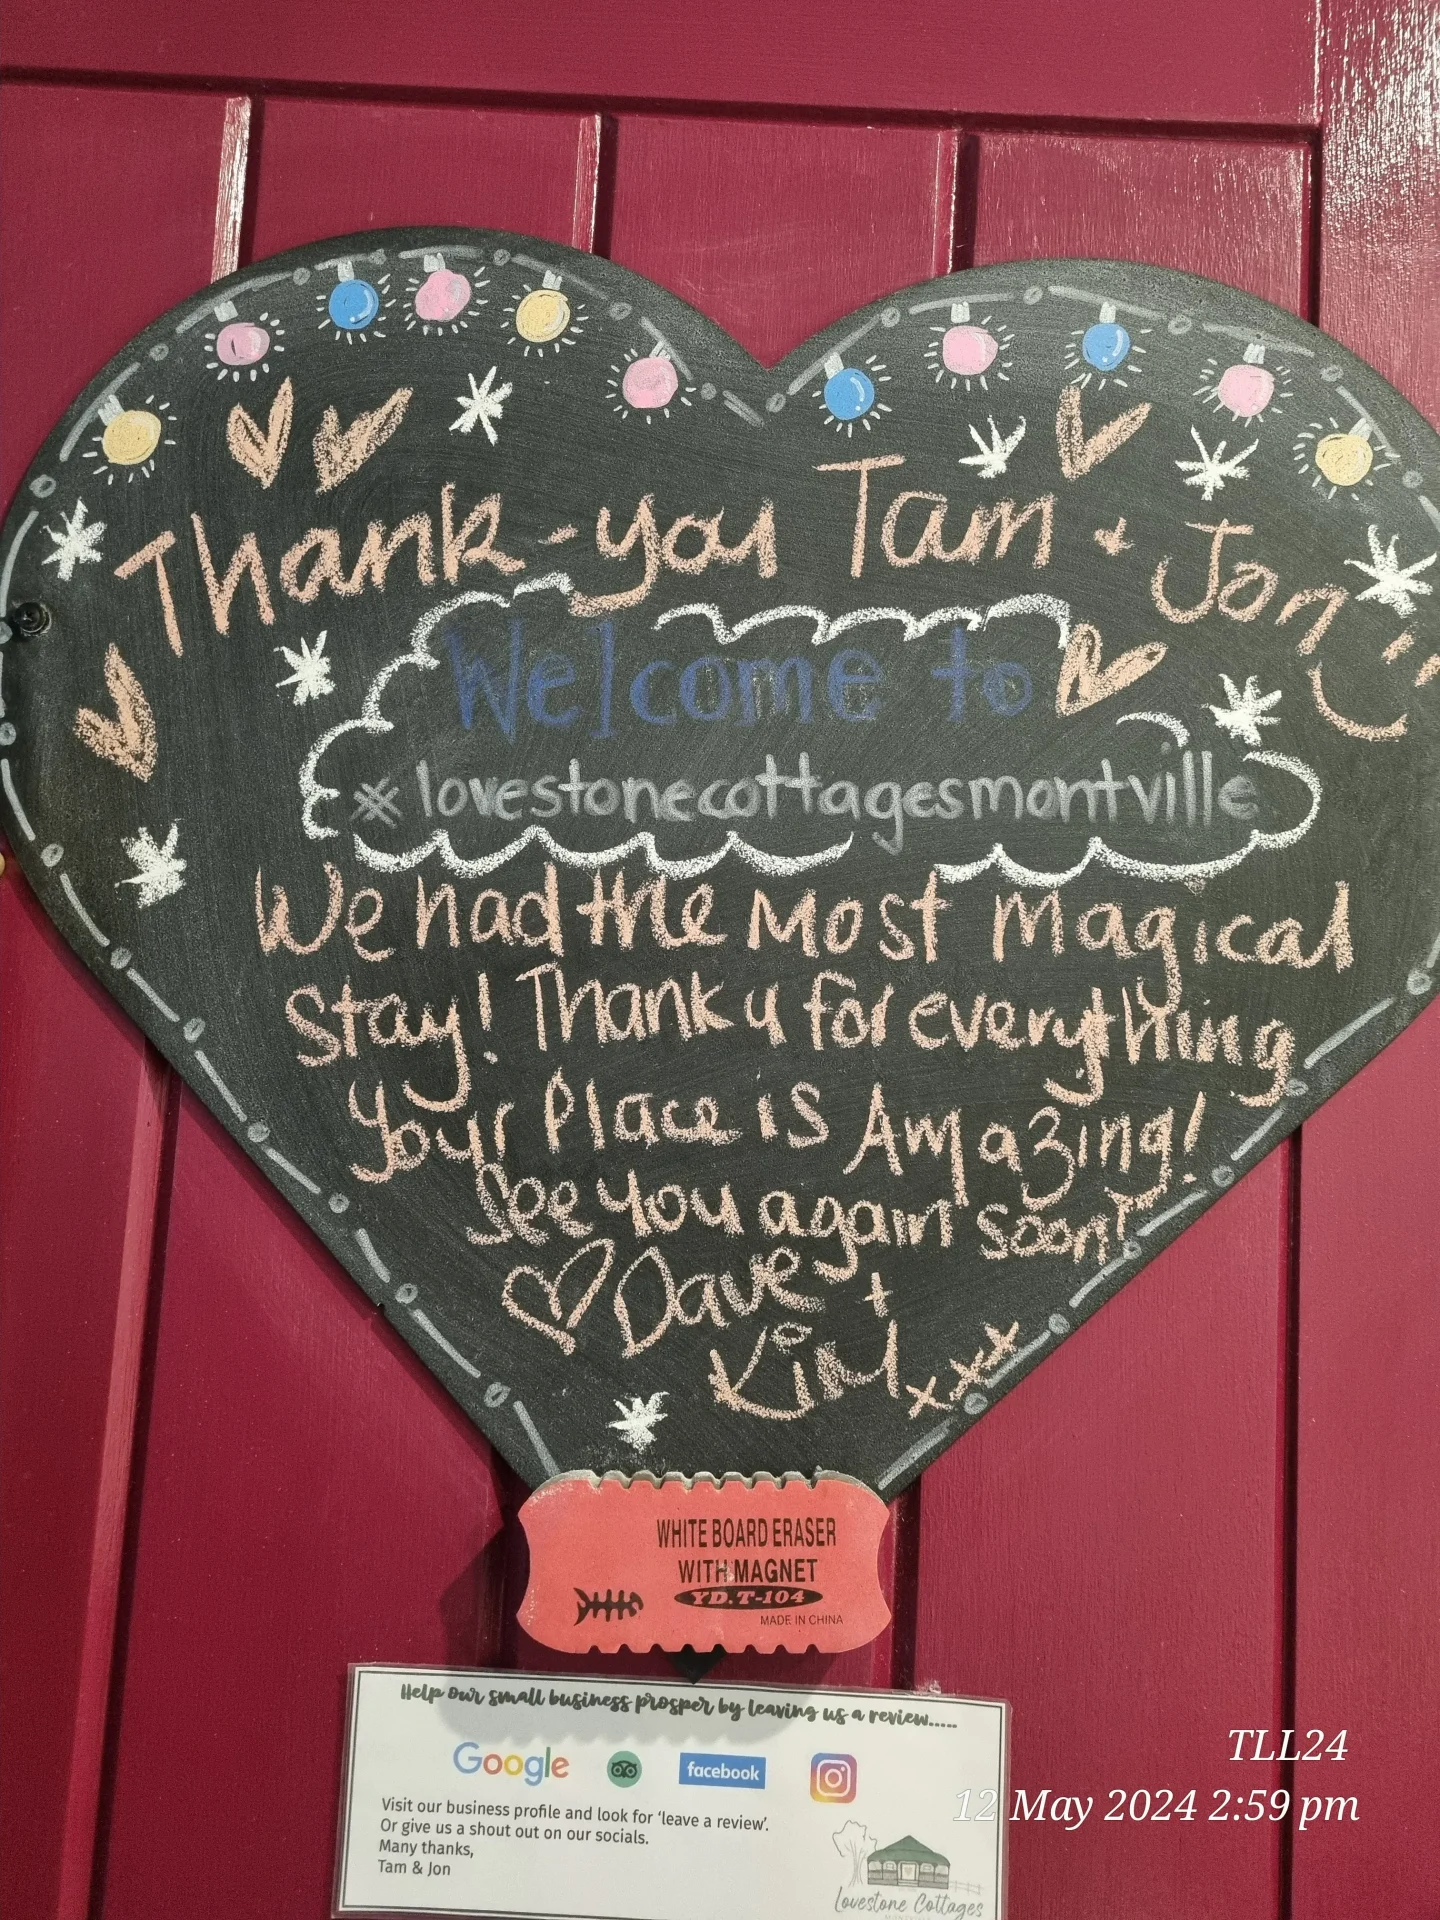 Thank-you Tam + Jon
Welcome to
#lovestonecottagesmontville
We had the Most Magical
Stay! Thank u for everything
Your Place is Amazing!
See you again soon!
Dave +
Kim xxx
WHITE BOARD ERASER
WITH MAGNET
YD.T-104
MADE IN CHINA
Help our small business prosper by leaving us a review.....
Google facebook
Visit our business profile and look for ‘leave a review’.
Or give us a shout out on our socials.
Many thanks,
Tam & Jon
Lovestone Cottages
TLL24
12 May 2024 2:59 pm